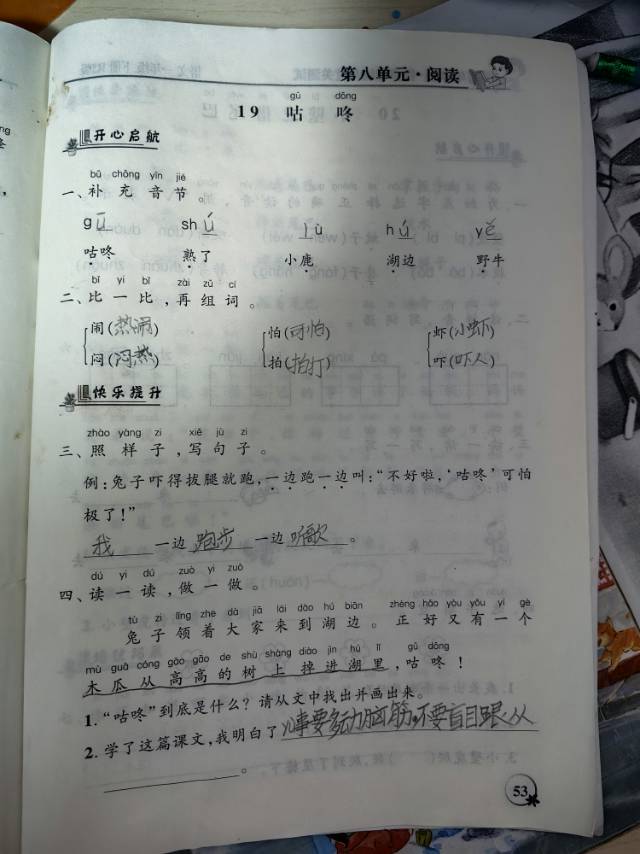 第八单元·阅读
gū dōng
19 咕 咚
开心启航
bǔ chōng yīn jié
一、补 充 音 节 。
gū shú lù hú yě
咕咚 熟了 小鹿 湖边 野牛
bǐ yi bǐ zài zǔ cí
二、比 一 比 ,再 组 词 。
闹(热闹) 怕(可怕) 虾(小虾)
闷(闷热) 拍(拍打) 吓(吓人)
快乐提升
zhào yàng zi xiě jù zi
三、照 样 子 ,写 句 子 。
例:兔子吓得拔腿就跑,一边跑一边叫:“不好啦,‘咕咚’可怕
极了!”
我 一边 跑步 一边 听歌 。
dú yi dú zuò yi zuò
四、读 一 读 ,做 一 做 。
tù zi lǐng zhe dà jiā lái dào hú biān zhèng hǎo yòu yǒu yí gè
兔 子 领 着 大 家 来 到 湖 边 。 正 好 又 有 一 个
mù guā cóng gāo gāo de shù shàng diào jìn hú lǐ gū dōng
木 瓜 从 高 高 的 树 上 掉 进 湖 里 ,咕 咚 !
1.“咕咚”到底是什么?请从文中找出并画出来。
2.学了这篇课文,我明白了 事要多动脑筋,不要盲目跟从
。
53